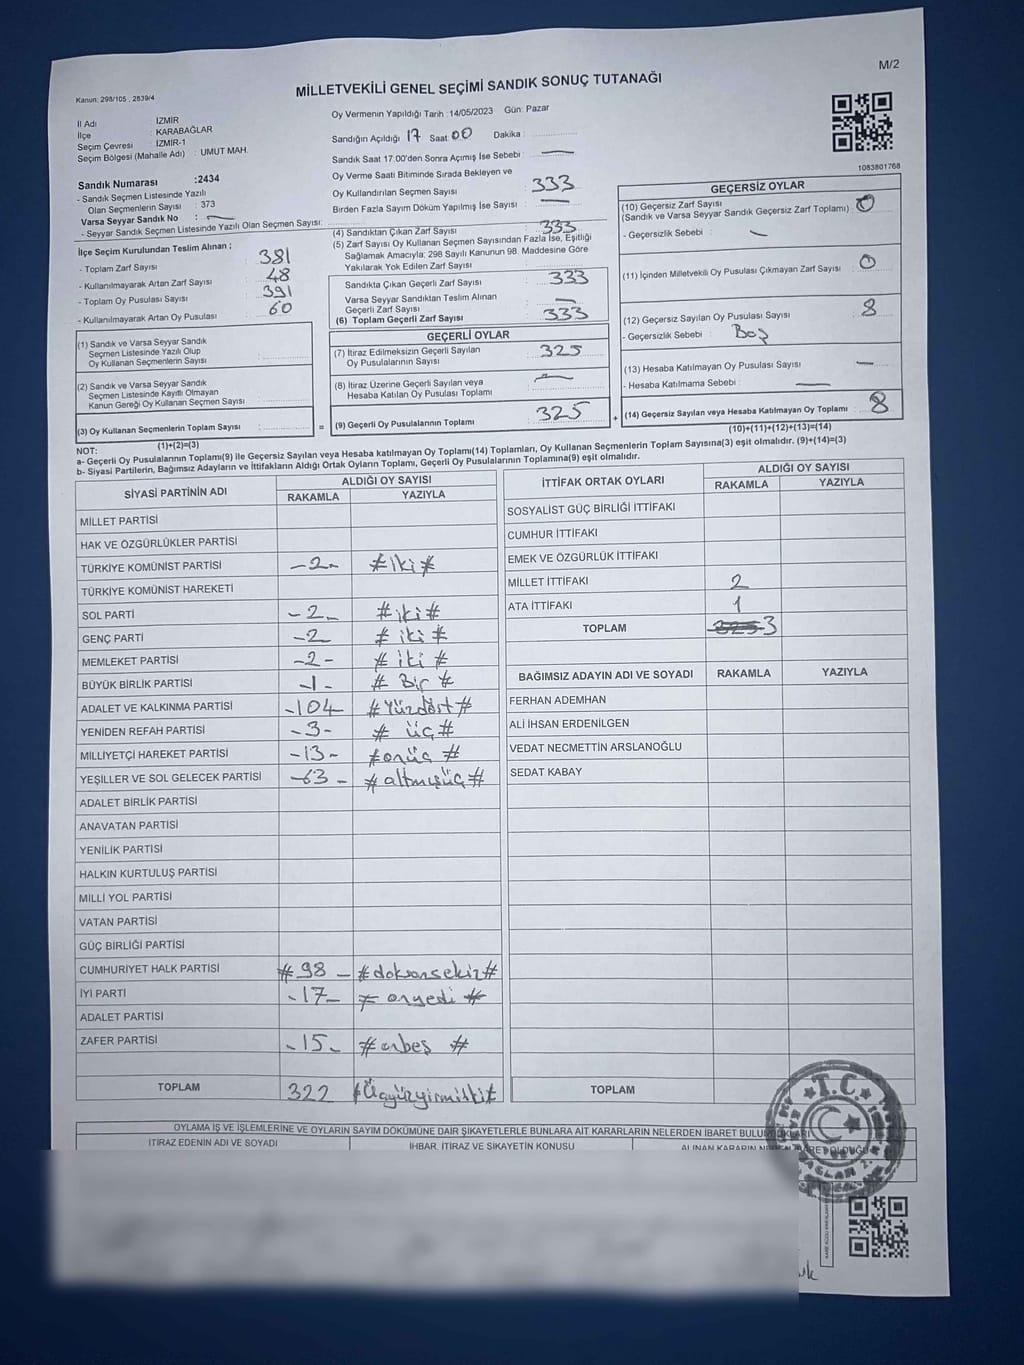 M/2
Kanun: 298/105 , 2839/4
MİLLETVEKİLİ GENEL SEÇİMİ SANDIK SONUÇ TUTANAĞI
İl Adı : İZMİR
İlçe : KARABAĞLAR
Seçim Çevresi : İZMİR-1
Seçim Bölgesi (Mahalle Adı) : UMUT MAH.
Sandık Numarası :2434
- Sandık Seçmen Listesinde Yazılı
Olan Seçmenlerin Sayısı : 373
Varsa Seyyar Sandık No : —
- Seyyar Sandık Seçmen Listesinde Yazılı Olan Seçmen Sayısı:
İlçe Seçim Kurulundan Teslim Alınan ;
- Toplam Zarf Sayısı : 381
- Kullanılmayarak Artan Zarf Sayısı : 48
- Toplam Oy Pusulası Sayısı : 391
- Kullanılmayarak Artan Oy Pusulası : 60
(1) Sandık ve Varsa Seyyar Sandık
Seçmen Listesinde Yazılı Olup
Oy Kullanan Seçmenlerin Sayısı :
(2) Sandık ve Varsa Seyyar Sandık
Seçmen Listesinde Kayıtlı Olmayan
Kanun Gereği Oy Kullanan Seçmen Sayısı :
(3) Oy Kullanan Seçmenlerin Toplam Sayısı :
(1)+(2)=(3)
Oy Vermenin Yapıldığı Tarih : 14/05/2023 Gün: Pazar
Sandığın Açıldığı 17 Saat 00 Dakika :
Sandık Saat 17.00'den Sonra Açımış İse Sebebi : —
Oy Verme Saati Bitiminde Sırada Bekleyen ve
Oy Kullandırılan Seçmen Sayısı : 333
Birden Fazla Sayım Döküm Yapılmış İse Sayısı : —
(4) Sandıktan Çıkan Zarf Sayısı : 333
(5) Zarf Sayısı Oy Kullanan Seçmen Sayısından Fazla İse, Eşitliği
Sağlamak Amacıyla; 298 Sayılı Kanunun 98. Maddesine Göre
Yakılarak Yok Edilen Zarf Sayısı :
Sandıkta Çıkan Geçerli Zarf Sayısı : 333
Varsa Seyyar Sandıktan Teslim Alınan
Geçerli Zarf Sayısı : —
(6) Toplam Geçerli Zarf Sayısı : 333
GEÇERLİ OYLAR
(7) İtiraz Edilmeksizin Geçerli Sayılan
Oy Pusulalarının Sayısı : 325
(8) İtiraz Üzerine Geçerli Sayılan veya
Hesaba Katılan Oy Pusulası Toplamı : —
= (9) Geçerli Oy Pusulalarının Toplamı : 325 +
1083801768
GEÇERSİZ OYLAR
(10) Geçersiz Zarf Sayısı
(Sandık ve Varsa Seyyar Sandık Geçersiz Zarf Toplamı) : 0
- Geçersizlik Sebebi : —
(11) İçinden Milletvekili Oy Pusulası Çıkmayan Zarf Sayısı : 0
(12) Geçersiz Sayılan Oy Pusulası Sayısı : 8
- Geçersizlik Sebebi : Boş
(13) Hesaba Katılmayan Oy Pusulası Sayısı : —
- Hesaba Katılmama Sebebi : —
(14) Geçersiz Sayılan veya Hesaba Katılmayan Oy Toplamı : 8
(10)+(11)+(12)+(13)=(14)
NOT:
a- Geçerli Oy Pusulalarının Toplamı(9) ile Geçersiz Sayılan veya Hesaba katılmayan Oy Toplamı(14) Toplamları, Oy Kullanan Seçmenlerin Toplam Sayısına(3) eşit olmalıdır. (9)+(14)=(3)
b- Siyasi Partilerin, Bağımsız Adayların ve İttifakların Aldığı Ortak Oyların Toplamı, Geçerli Oy Pusulalarının Toplamına(9) eşit olmalıdır.
SİYASİ PARTİNİN ADI ALDIĞI OY SAYISI
RAKAMLA YAZIYLA
MİLLET PARTİSİ
HAK VE ÖZGÜRLÜKLER PARTİSİ
TÜRKİYE KOMÜNİST PARTİSİ -2- #iki#
TÜRKİYE KOMÜNİST HAREKETİ
SOL PARTİ -2- #iki#
GENÇ PARTİ -2- #iki#
MEMLEKET PARTİSİ -2- #iki#
BÜYÜK BİRLİK PARTİSİ -1- #Bir#
ADALET VE KALKINMA PARTİSİ -104 #Yüzdört#
YENİDEN REFAH PARTİSİ -3- #üç#
MİLLİYETÇİ HAREKET PARTİSİ -13- #onüç#
YEŞİLLER VE SOL GELECEK PARTİSİ -63- #altmışüç#
ADALET BİRLİK PARTİSİ
ANAVATAN PARTİSİ
YENİLİK PARTİSİ
HALKIN KURTULUŞ PARTİSİ
MİLLİ YOL PARTİSİ
VATAN PARTİSİ
GÜÇ BİRLİĞİ PARTİSİ
CUMHURİYET HALK PARTİSİ #98- #doksansekiz#
İYİ PARTİ -17- #onyedi#
ADALET PARTİSİ
ZAFER PARTİSİ -15- #onbeş#
TOPLAM 322 #Üçyüzyirmiiki#
İTTİFAK ORTAK OYLARI ALDIĞI OY SAYISI
RAKAMLA YAZIYLA
SOSYALİST GÜÇ BİRLİĞİ İTTİFAKI
CUMHUR İTTİFAKI
EMEK VE ÖZGÜRLÜK İTTİFAKI
MİLLET İTTİFAKI 2
ATA İTTİFAKI 1
TOPLAM 325 3
BAĞIMSIZ ADAYIN ADI VE SOYADI RAKAMLA YAZIYLA
FERHAN ADEMHAN
ALİ İHSAN ERDENİLGEN
VEDAT NECMETTİN ARSLANOĞLU
SEDAT KABAY
TOPLAM
OYLAMA İŞ VE İŞLEMLERİNE VE OYLARIN SAYIM DÖKÜMÜNE DAİR ŞİKAYETLERLE BUNLARA AİT KARARLARIN NELERDEN İBARET BULUNDUKLARI
İTİRAZ EDENİN ADI VE SOYADI İHBAR, İTİRAZ VE ŞİKAYETİN KONUSU ALINAN KARARIN NEDEN İBARET OLDUĞU
T.C.